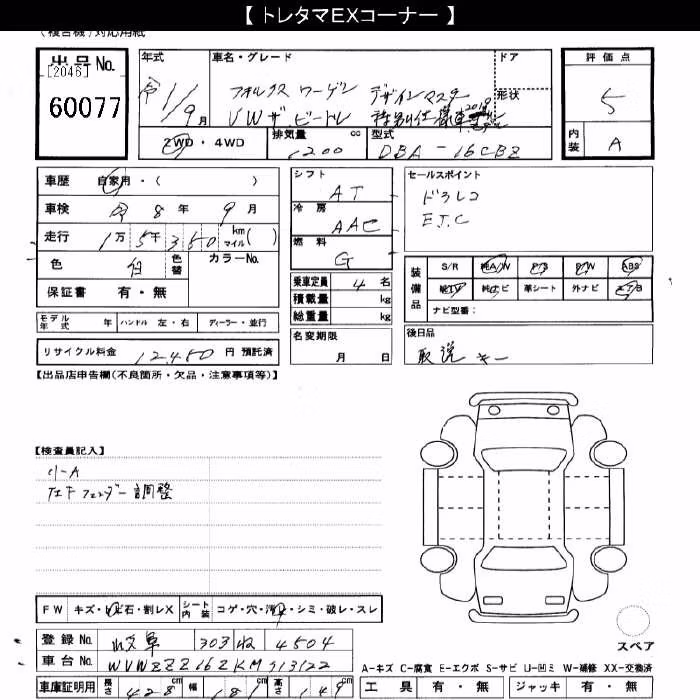 【 トレタマEXコーナー 】
(複合機)対応用紙
出品No.
[2046]
60077
年式 令1/9月
車名・グレード
フォルクスワーゲン デザインマスター
VWザ.ビートル 特別仕様車 2019
ドア
形状
評価点
5
内装 A
2WD・4WD
排気量 1200 cc
型式 DBA-16CBZ
車歴 自家用・( )
車検 令 8 年 9 月
走行 1万 5千 350 km マイル( )
色 白 色替 カラーNo.
保証書 有・無
シフト AT
冷房 AAC
燃料 G
乗車定員 4 名
積載量 kg
総重量 kg
セールスポイント
ドラレコ
E.T.C
装備品
S/R 純A/W P/S P/W ABS
純TV 純ナビ 革シート 外ナビ エアB
ナビ型番:
モデル年式 年 ハンドル 左・右 ディーラー・並行
名変期限 月 日
後日品
取説 キー
リサイクル料金 12,450 円 預託済
【出品店申告欄(不良箇所・欠品・注意事項等)】
【検査員記入】
リ-A
左F フェンダー調整
FW キズ・トビ石・割レX シート内装 コゲ・穴・汚レ・シミ・破レ・スレ
登録No. 岐阜 303 ね 4504
車台No. WVWZZZ16ZKM713122
車庫証明用 長さ 428 cm 幅 181 cm 高さ 149 cm
スペア
A-キズ C-腐食 E-エクボ S-サビ U-凹ミ W-補修 XX-交換済
工具 有・無 ジャッキ 有・無